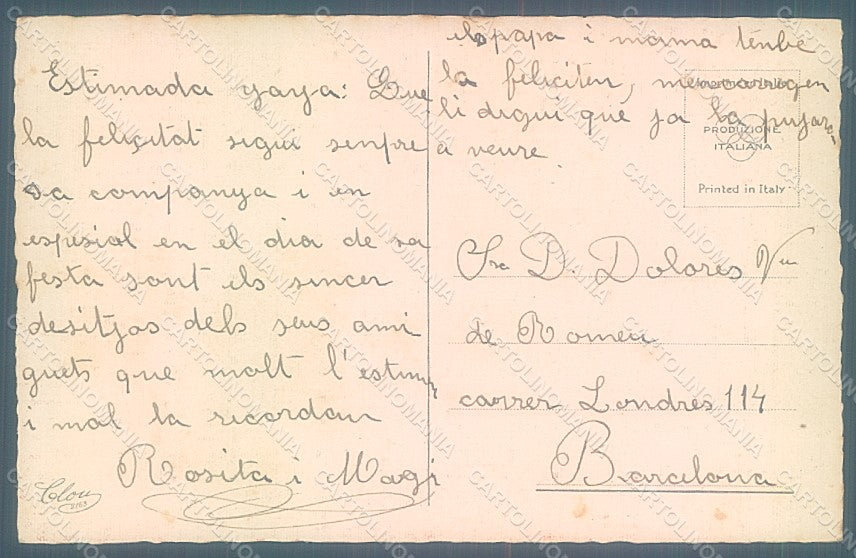 Estimada yaya: Que
la feliçitat sigui senpre
sa companya i en
espesial en el dia de sa
festa sont els sincer
desitjos dels seus ami
guets que molt l'estimen
i mol la recordan
Rosita i Magi
els papa i mama tenbe
la feliciten,
li digui que ja la pujare
a veure.
PRODUZIONE
ITALIANA
Printed in Italy
Sra D. Dolores Vda
de Romeu
carrer Londres 114
Barcelona
CARTOLINOMANIA